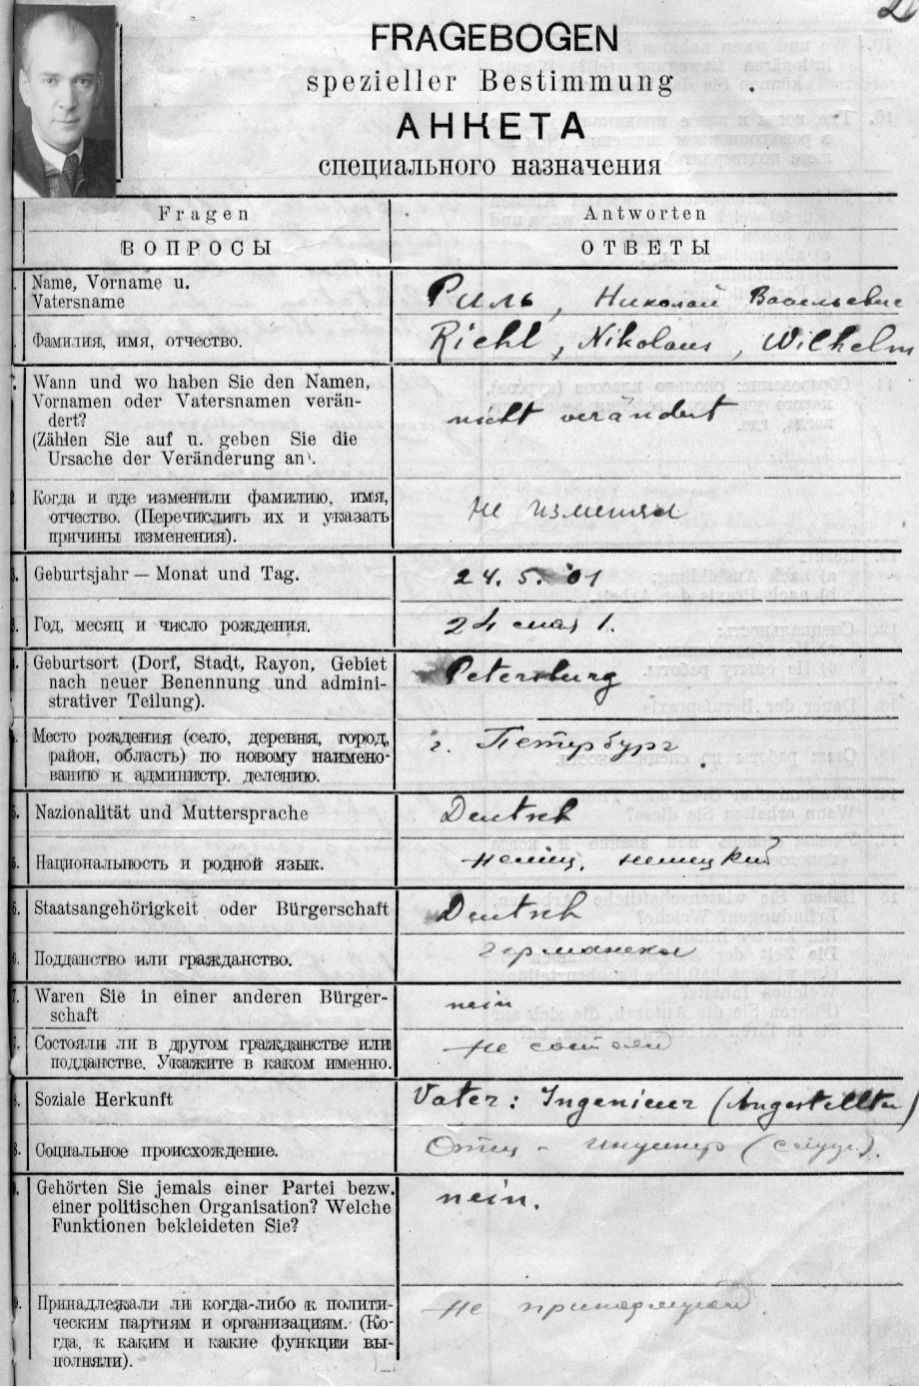 FRAGEBOGEN
spezieller Bestimmung
АНКЕТА
специального назначения
Fragen
Antworten
ВОПРОСЫ
ОТВЕТЫ
Name, Vorname u.
Vatersname
Риль, Николай Васильевич
Фамилия, имя, отчество.
Riehl, Nikolaus, Wilhelm
Wann und wo haben Sie den Namen,
Vornamen oder Vatersnamen verän-
dert?
(Zählen Sie auf u. geben Sie die
Ursache der Veränderung an.
nicht verändert
Когда и где изменили фамилию, имя,
отчество. (Перечислить их и указать
причины изменения).
Не изменял
3. Geburtsjahr — Monat und Tag.
24. 5. 01
3. Год, месяц и число рождения.
24 мая 1.
4. Geburtsort (Dorf, Stadt, Rayon, Gebiet
nach neuer Benennung und admini-
strativer Teilung).
Petersburg
Место рождения (село, деревня, город,
район, область) по новому наимено-
ванию и администр. делению.
г. Петербург
5. Nazionalität und Muttersprache
Deutsch
5. Национальность и родной язык.
немец, немецкий
6. Staatsangehörigkeit oder Bürgerschaft
Deutsch
6. Подданство или гражданство.
германское
7. Waren Sie in einer anderen Bürger-
schaft
nein
7. Состояли ли в другом гражданстве или
подданстве. Укажите в каком именно.
Не состоял
8. Soziale Herkunft
Vater: Ingenieur (Angestellter)
8. Социальное происхождение.
Отец - инженер (служ.).
9. Gehörten Sie jemals einer Partei bezw.
einer politischen Organisation? Welche
Funktionen bekleideten Sie?
nein.
9. Принадлежали ли когда-либо к полити-
ческим партиям и организациям. (Ко-
гда, к каким и какие функции вы-
полняли).
Не принадлежал.